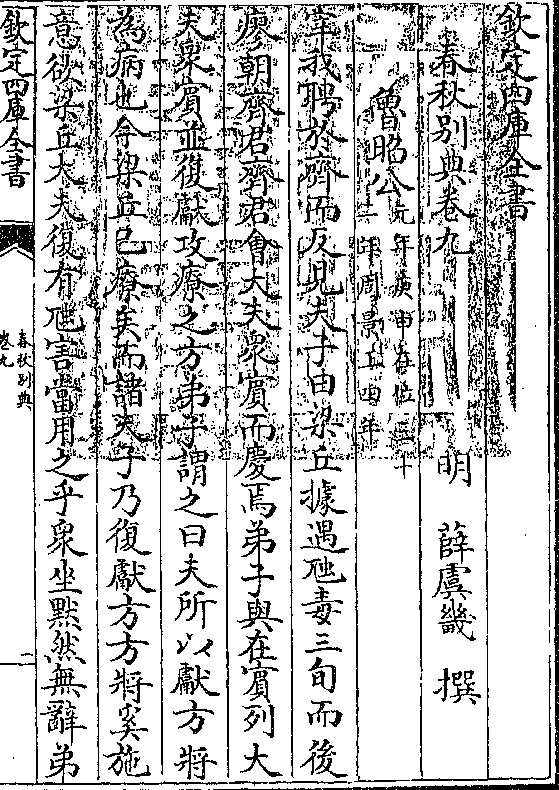 欽定四庫全書
春秋别典卷九
明 薛虞畿 撰
魯昭公元年庚申在位三十
二年周景王四年
宰我聘於齊而反見夫子曰梁丘據遇虺毒三旬而後
瘳朝齊君齊君會大夫衆賓而慶焉弟子與在賓列大
夫衆賓並復獻攻療之方弟子謂之曰夫所以獻方將
為病也今梁丘已療矣而諸夫子乃復獻方方將奚施
意欲梁丘大夫復有虺害當用之乎衆坐默然無辭弟
欽定四庫全書
春秋别典
卷九
一